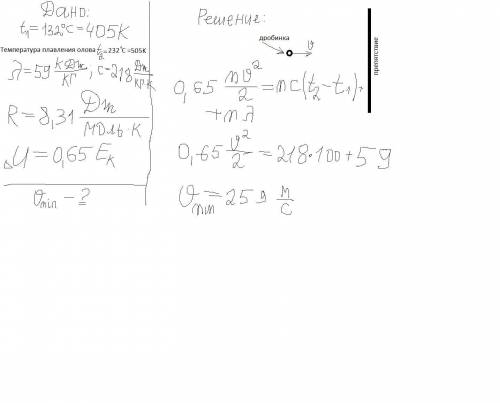 Дано:
t₁ = 132°C = 405K
Температура плавления олова t₂ = 232°C = 505K
λ = 59 кДж/кг; c = 218 Дж/кг·К
R = 8,31 Дж/моль·К
ΔU = 0,65 Eк
υmin - ?
Решение:
дробинка
υ
препятствие
0,65 mυ²/2 = mc(t₂ - t₁) +
+ mλ
0,65 υ²/2 = 218·100 + 59
υmin = 259 м/с